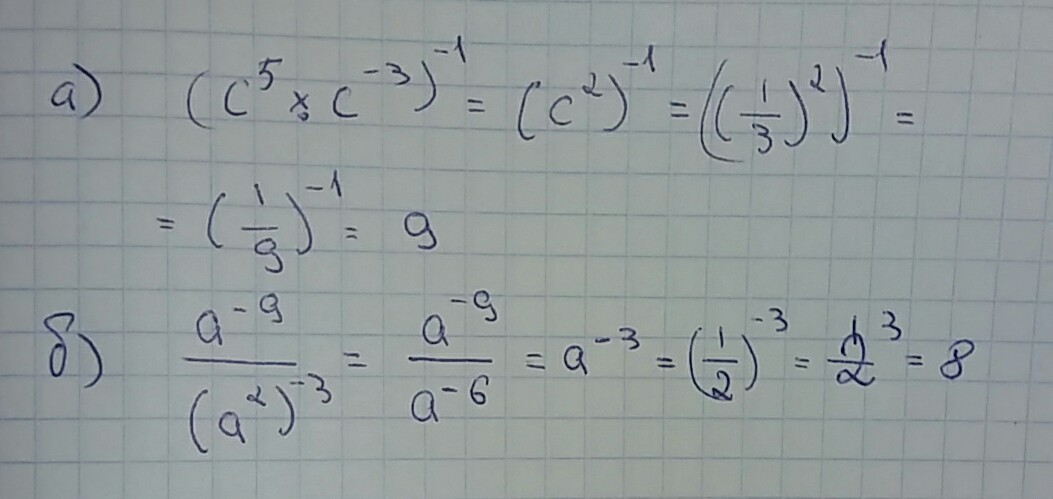 а) (c⁵ × c⁻³)⁻¹ = (c²)⁻¹ = ((1/3)²)⁻¹ =
= (1/9)⁻¹ = 9
б) a⁻⁹/(a²)⁻³ = a⁻⁹/a⁻⁶ = a⁻³ = (1/2)⁻³ = 1/2³ = 8